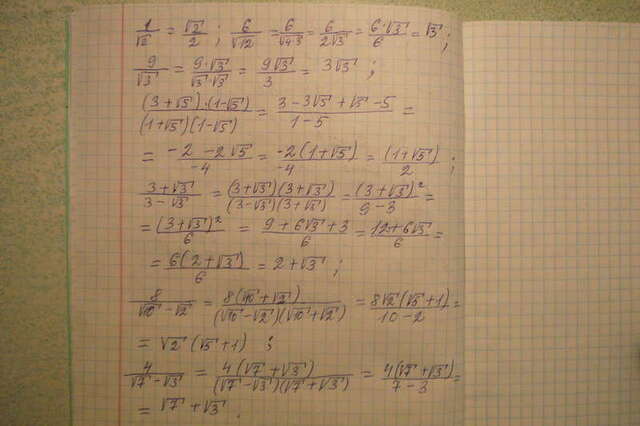 1/√2 = √2/2 ; 6/√12 = 6/√4·3 = 6/2√3 = 6·√3/6 = √3 ;
9/√3 = 9·√3/√3·√3 = 9√3/3 = 3√3 ;
(3+√5)·(1-√5)/(1+√5)(1-√5) = 3-3√5+√5-5/1-5 =
= -2-2√5/-4 = -2(1+√5)/-4 = (1+√5)/2 ;
3+√3/3-√3 = (3+√3)(3+√3)/(3-√3)(3+√3) = (3+√3)²/9-3 =
= (3+√3)²/6 = 9+6√3+3/6 = 12+6√3/6 =
= 6(2+√3)/6 = 2+√3 ;
8/√10-√2 = 8(√10+√2)/(√10-√2)(√10+√2) = 8√2(√5+1)/10-2 =
= √2(√5+1) ;
4/√7-√3 = 4(√7+√3)/(√7-√3)(√7+√3) = 4(√7+√3)/7-3 =
= √7+√3 ;